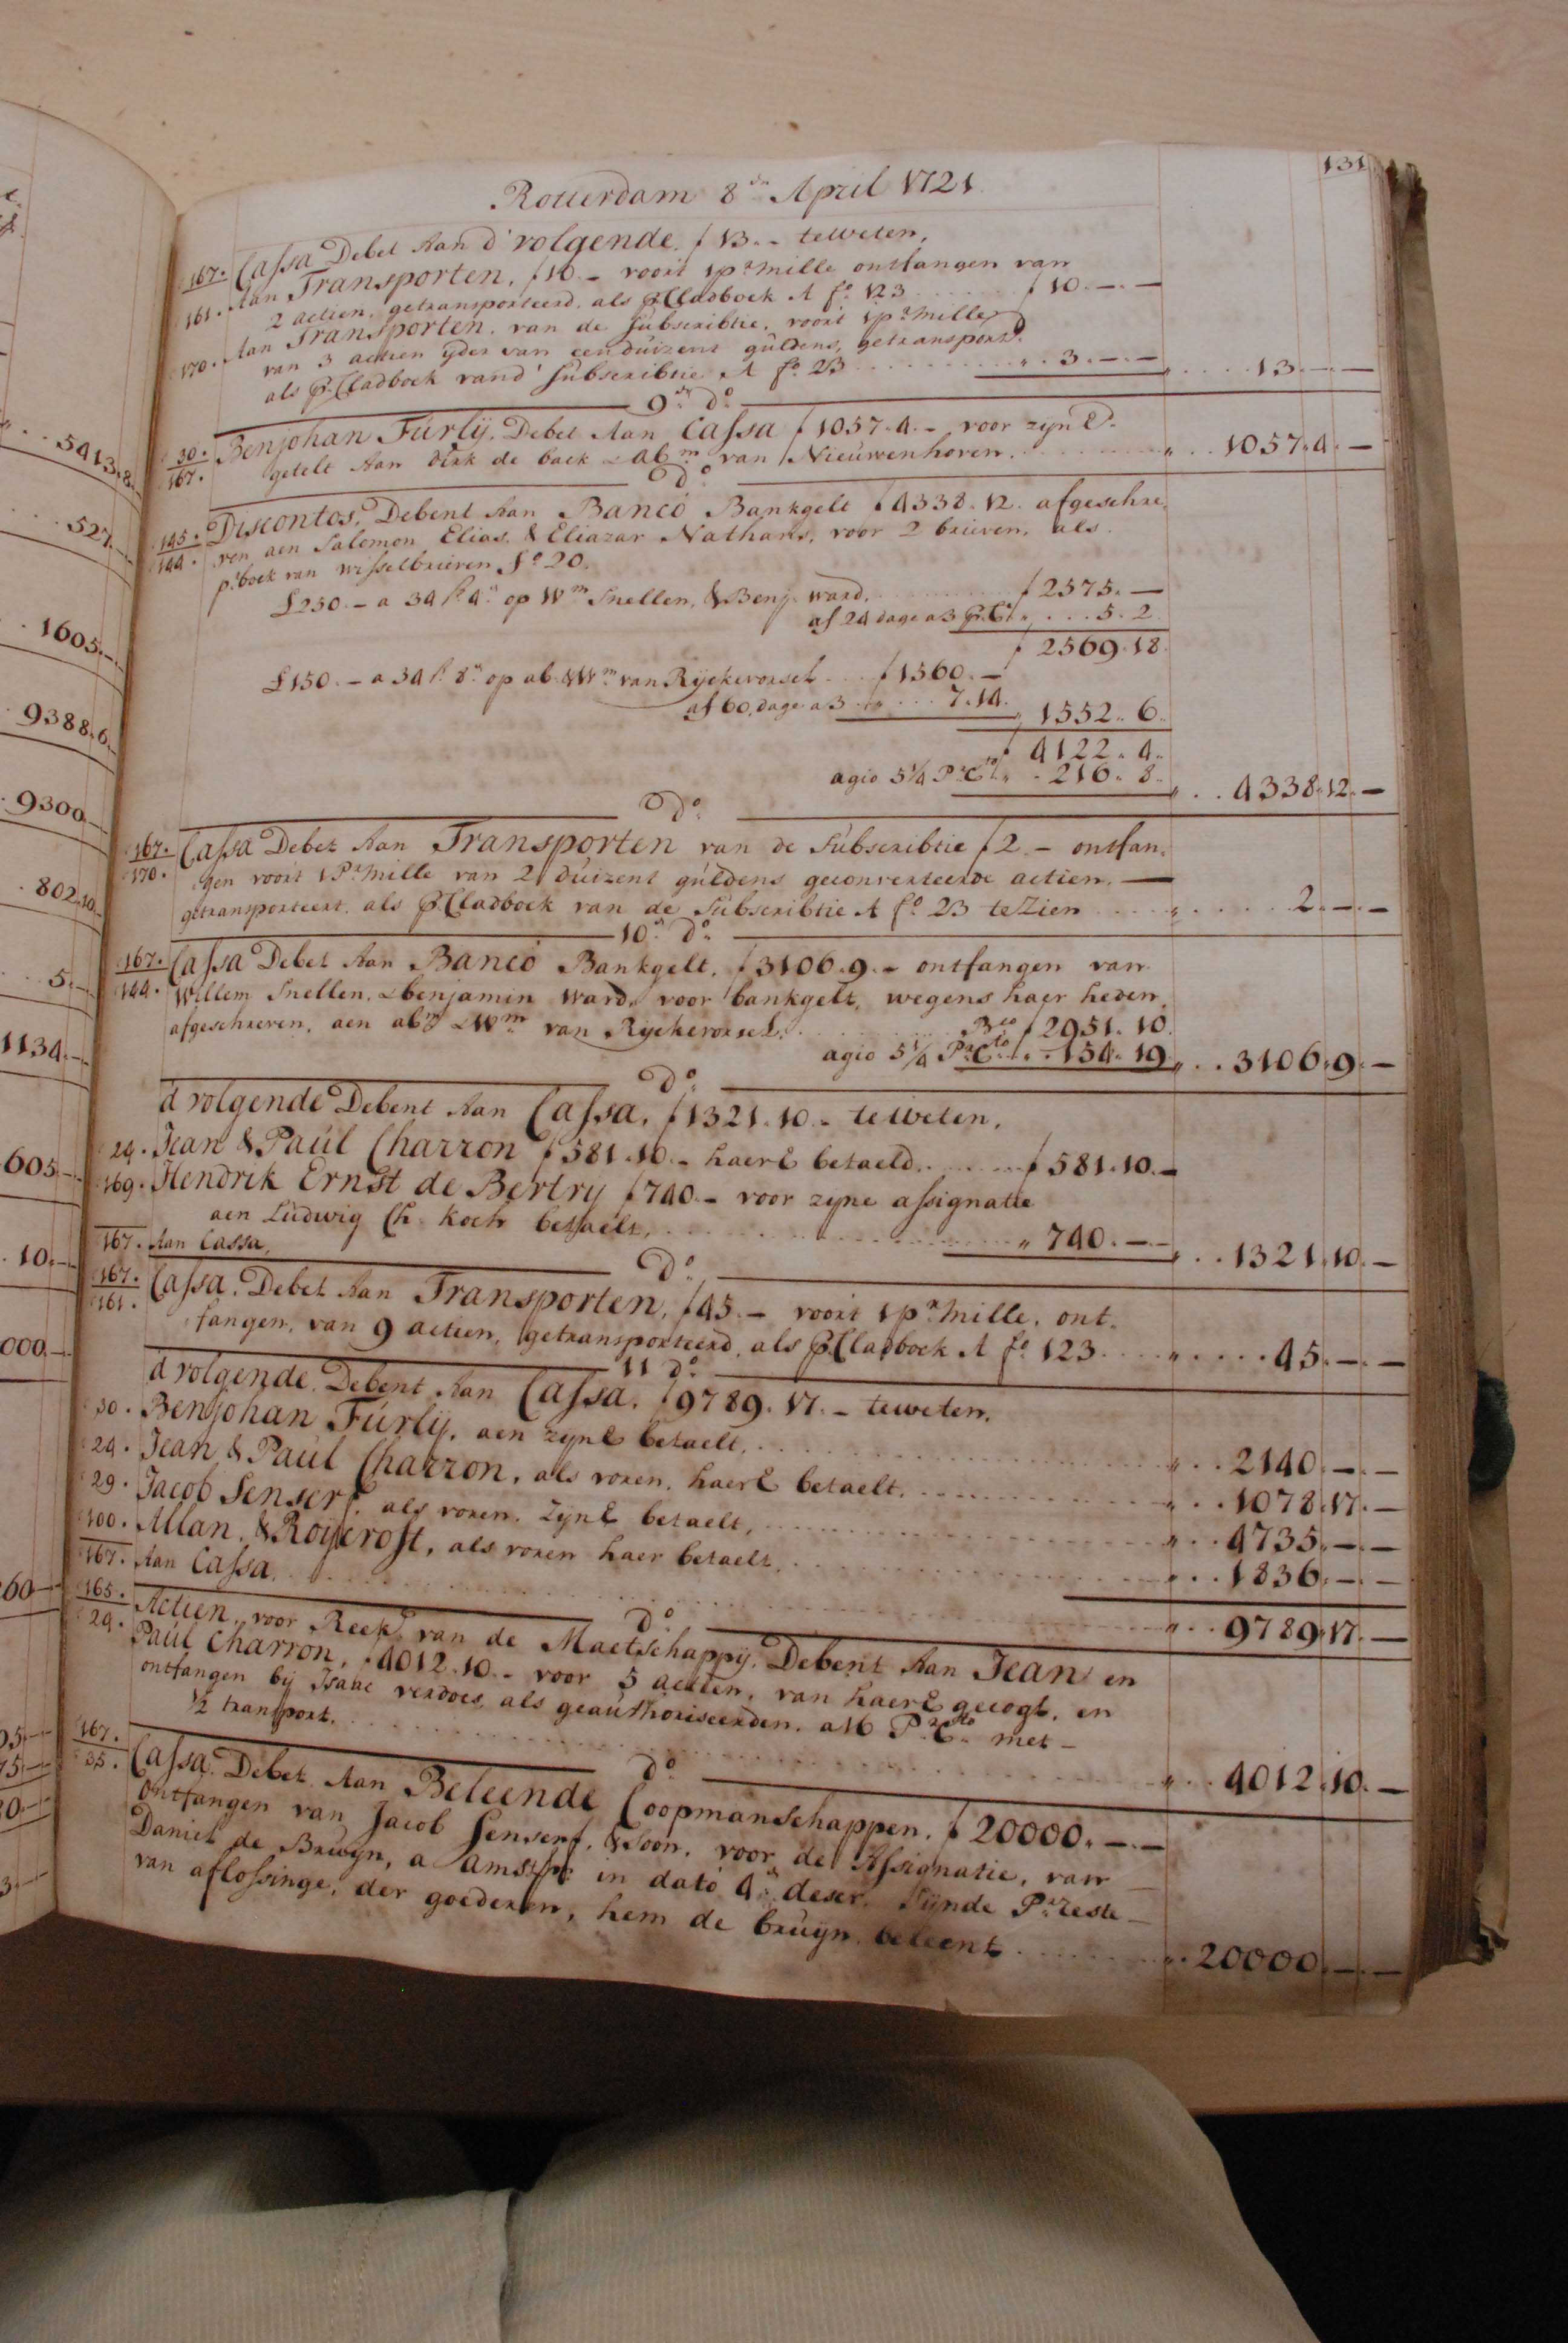 131
Rotterdam 8en April 1721
167. Cassa Debet Aan d'volgende, f 13.- teweten,
161. Aan Transporten, f 10.- voort 1 pr mille ontfangen van
2 actien, getransporteerd, als pr Cladboek A fo 123 f 10.-.-
170. Aan Transporten, van de Subscribtie, voort 1 pr mille
van 3 actien ijder van een duizent guldens, getransportd
als pr Cladboek vand' Subscribtie A fo 23 " 3.-.- " 13.-.-
9en do
30. Benjohan Furlij, Debet Aan Cassa f 1057.4.- voor zijn E.
167. getelt Aan dirk de back & abm van Nieuwenhoven. " 1057.4.-
do
145. Discontos, Debent Aan Banco Bankgelt f 4338.12. afgeschre,
144. ven aen Salomon Elias, & Eliazar Nathans, voor 2 brieven, als
pr boek van wisselbrieven fo 20.
£250.- a 34 s 4 op Wm Snellen, & Benj. ward, f 2575.-
af 24 dage a 3 pr Cto " 5.2
f 2569.18.
£150.- a 34 s 8 op ab. & Wm van Rijckevorsel f 1560.-
af 60 dage a 3 " 7.14. " 1552.6.
f 4122.4.
agio 5 1/4 Pr Cto " 216.8. " 4338.12.-
do
167. Cassa Debet Aan Transporten van de Subscribtie f 2.- ontfan,
170. gen voort 1 Pr mille van 2 duizent guldens geconverteerde actien,
getransporteert, als pr Cladboek van de Subscribtie A fo 23 te Zien " 2.-.-
10en do
167. Cassa Debet Aan Banco Bankgelt, f 3106.9.- ontfangen van
144. Willem Snellen, & benjamin Ward, voor bankgelt, wegens haer heden,
afgeschreven, aen abm & Wm van Rijckevorsel, Bco f 2951.10.
agio 5 1/4 Pr Cto " 154.19 " 3106.9.-
do
d'volgende Debent Aan Cassa, f 1321.10.- teweten,
24. Jean & Paul Charron f 581.10.- haer E betaeld, f 581.10.-
169. Hendrik Ernst de Bertrij f 740.- voor zijne assignatie
aen Ludwig Ch. Koch betaelt, " 740.-.-
167. Aan Cassa, " 1321.10.-
do
167. Cassa, Debet Aan Transporten, f 45.- voort 1 pr mille, ont,
161. fangen, van 9 actien, getransporteerd, als pr Cladboek A fo 123 " 45.-.-
11 do
d'volgende, Debent Aan Cassa, f 9789.17.- teweten,
30. Benjohan Furlij, aen zijn E betaelt, " 2140.-.-
24. Jean & Paul Charron, als voren, haer E betaelt, " 1078.17.-
29. Jacob Senserf, als voren, Zijn E betaelt, " 4735.-.-
100. Allan, & Roijcroft, als voren haer betaelt, " 1836.-.-
167. Aan Cassa, " 9789.17.-
do
165. Actien, voor Reekg van de Maetschappij, Debent Aan Jean en
24. Paul Charron, f 4012.10.- voor 5 actien, van haer E gecogt, en
ontfangen bij Isaac verdoes, als geauthoriseerden, a 16 Pr Cto met -
1/2 transport, " 4012.10.-
do
167. Cassa Debet Aan Beleende Coopmanschappen, f 20000.-.-
35. Ontfangen van Jacob Senserf, & Soon, voor de Assignatie, van
Daniel de Bruijn, a Amstm in dato 4en deser, Sijnde Pr reste -
van aflossinge, der goederen, hem de bruijn beleent " 20000.-.-
5413.8.
527.-
1605.-
9388.6.
9300.-
802.10.
5.-
1134.-
605.-
10.-
000.-
60.-